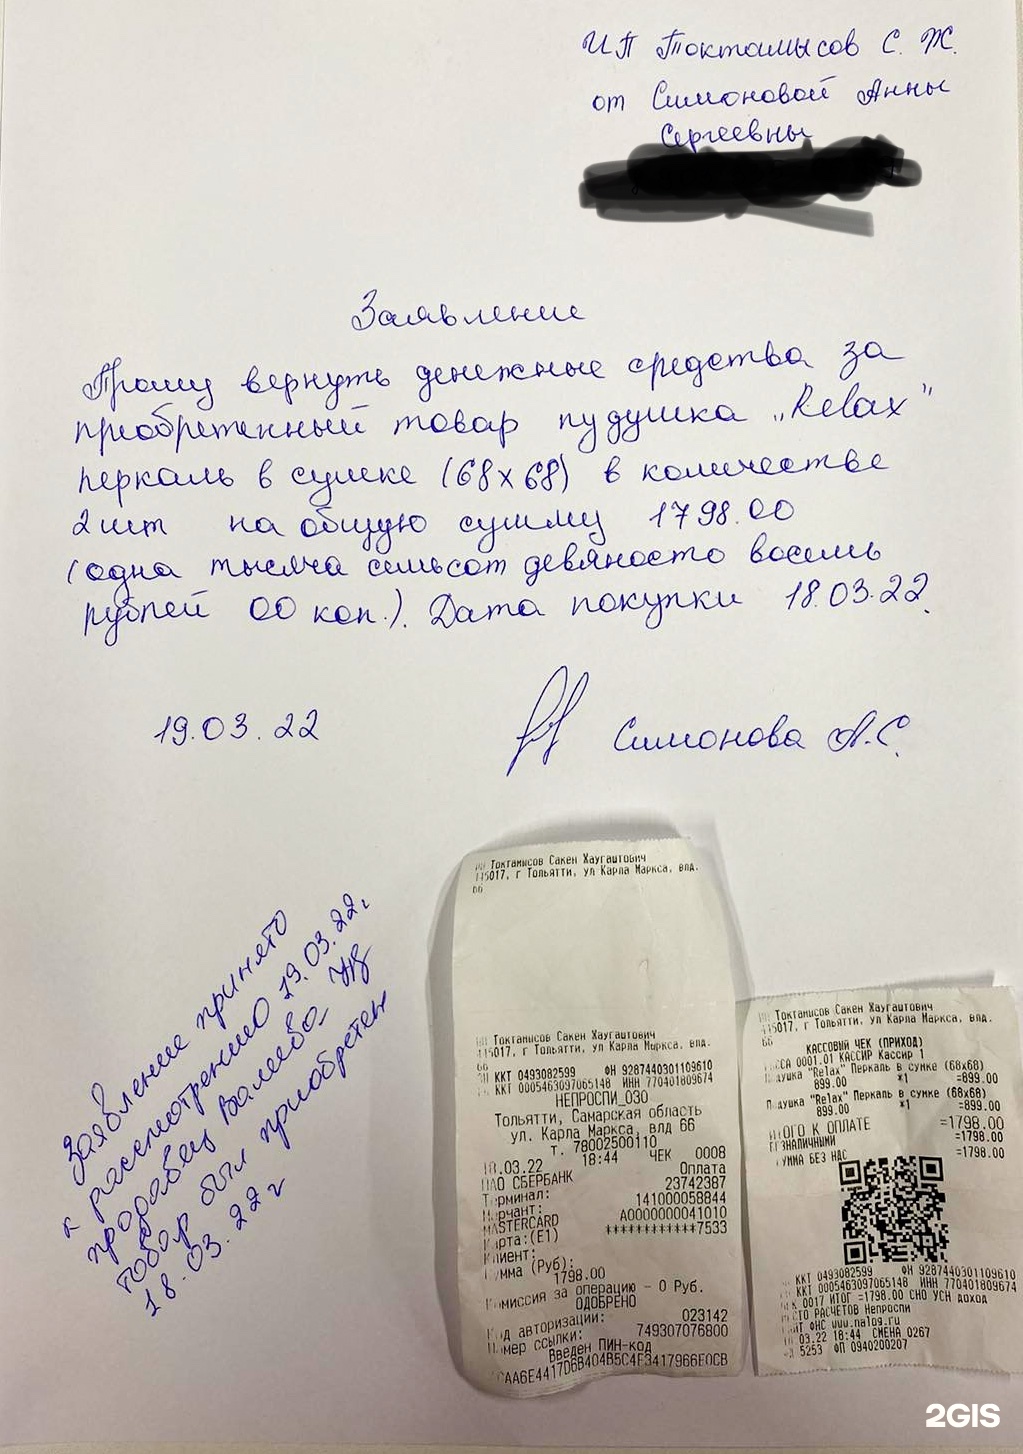 ИП Токтамысов С. Ж.
от Симоновой Анны
Сергеевны
Заявление
Прошу вернуть денежные средства за
приобретенный товар пудушка „Relax"
перкаль в сумке (68х68) в количестве
2шт на общую сумму 1798.00
(одна тысяча семьсот девяносто восемь
рублей 00 коп.). Дата покупки 18.03.22.
19.03.22
Симонова А.С.
Заявление принято
к рассмотрению 19.03.22г.
продавец Валеева
товар был приобретен
18.03.22г
Токтамысов Сакен Хаугаштович
445017, г Тольятти, ул Карла Маркса, влд.
66
Токтамысов Сакен Хаугаштович
445017, г Тольятти, ул Карла Маркса, влд.
66
ККТ 0493082599 ФН 9287440301109610
ККТ 0005463097065148 ИНН 770401809674
НЕПРОСПИ_030
Тольятти, Самарская область
ул. Карла Маркса, влд 66
т. 78002500110
18.03.22 18:44 ЧЕК 0008
ПАО СБЕРБАНК Оплата
Терминал: 23742387
Мерчант: 141000058844
MASTERCARD A0000000041010
Карта:(E1) ************7533
Клиент:
Сумма (Руб):
1798.00
Комиссия за операцию – 0 Руб.
ОДОБРЕНО
Код авторизации: 023142
Номер ссылки: 749307076800
Введен ПИН-код
CAA6E4417D6B404B5C4F3417966E0CB
Токтамысов Сакен Хаугаштович
445017, г Тольятти, ул Карла Маркса, влд.
66
КАССОВЫЙ ЧЕК (ПРИХОД)
КАССА 0001.01 КАССИР Кассир 1
Подушка "Relax" Перкаль в сумке (68х68)
899.00 *1 =899.00
Подушка "Relax" Перкаль в сумке (68х68)
899.00 *1 =899.00
ИТОГО К ОПЛАТЕ =1798.00
БЕЗНАЛИЧНЫМИ =1798.00
СУММА БЕЗ НДС =1798.00
ККТ 0493082599 ФН 9287440301109610
ККТ 0005463097065148 ИНН 770401809674
ЧЕК 0017 ИТОГ =1798.00 СНО УСН доход
МЕСТО РАСЧЕТОВ Непроспи
САЙТ ФНС www.nalog.ru
18.03.22 18:44 СМЕНА 0267
ФД 5253 ФП 0940200207
2GIS